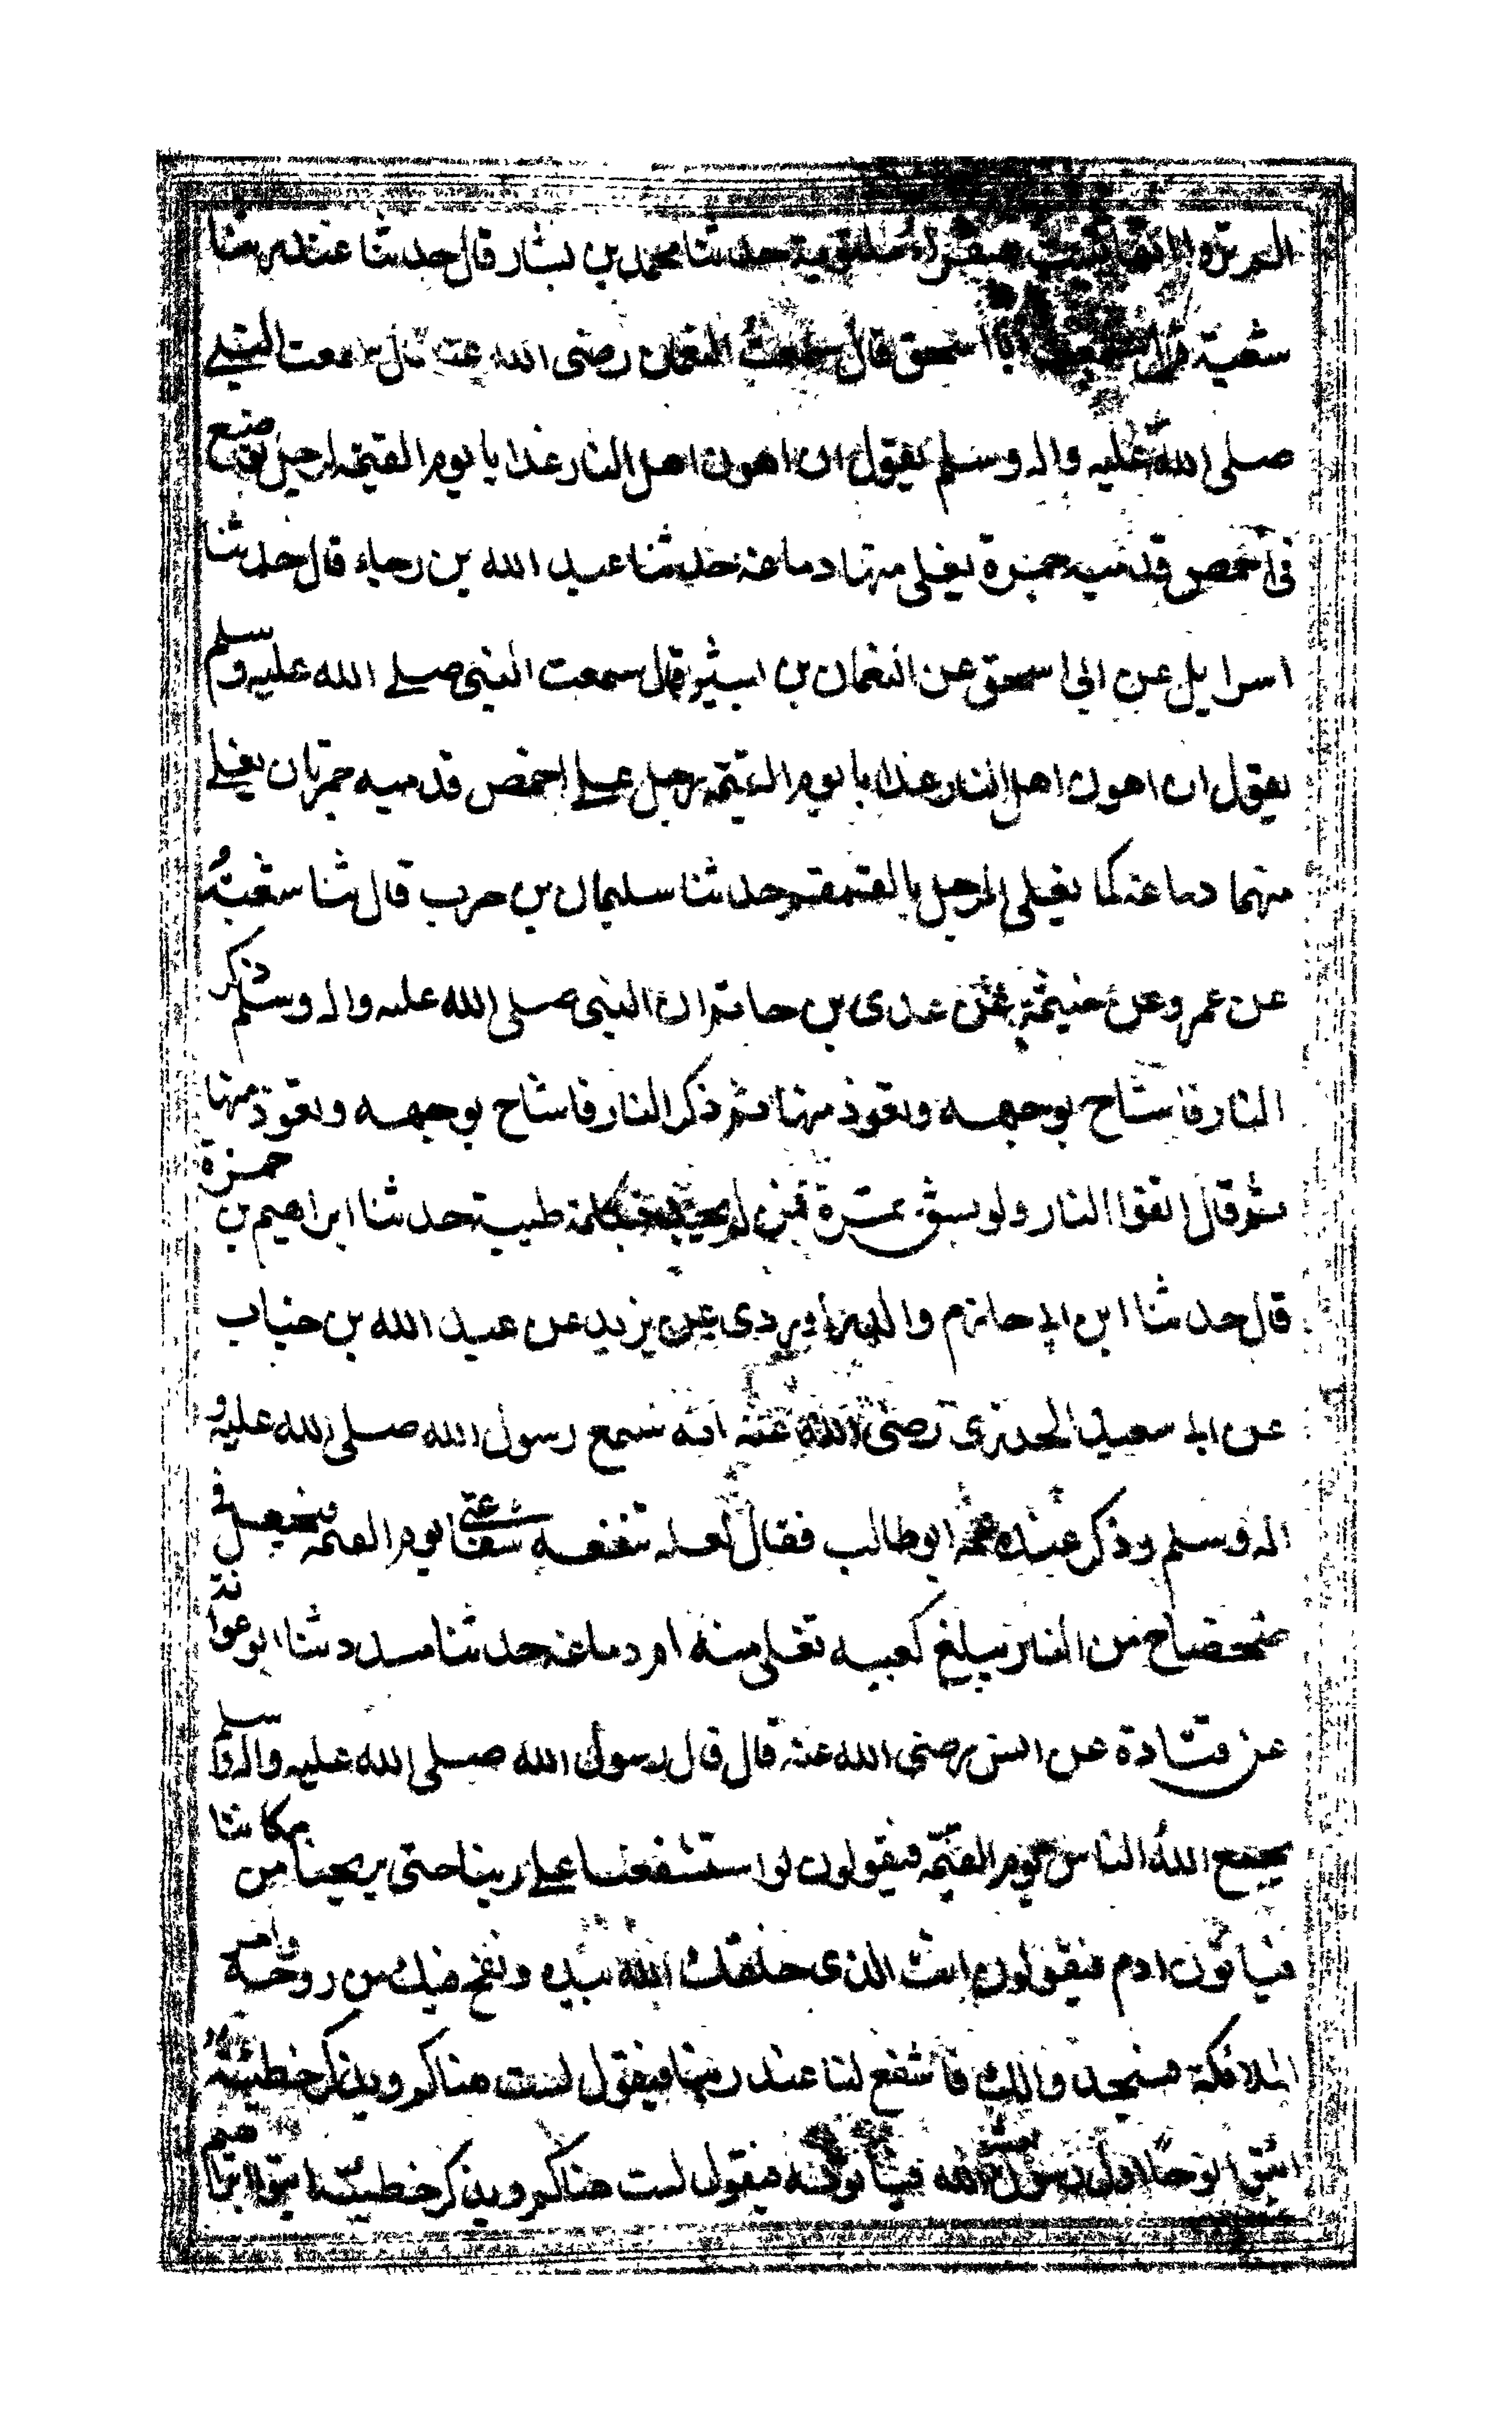 الم تروا انها تنبت صفراء ملتوية حدثنا محمد بن بشار قال حدثنا غندر ثنا
شعبة قال سمعت ابا اسحق قال سمعت النعمان رضى الله عنه قال سمعت النبي
صلى الله عليه واله وسلم يقول ان اهون اهل النار عذابا يوم القيمة لرجل توضع
في اخمص قدميه جمرة يغلى منها دماغه حدثنا عبد الله بن رجاء قال حدثنا
اسرايل عن ابى اسحق عن النعمان بن بشير قال سمعت النبى صلى الله عليه وسلم
يقول ان اهون اهل النار عذابا يوم القيمة رجل على اخمص قدميه جمرتان يغلى
منهما دماغه كما يغلى المرجل بالقمقم حدثنا سليمان بن حرب قال ثنا شعبة
عن عمرو عن خيثمة عن عدى بن حاتم ان النبى صلى الله عليه واله وسلم ذكر
النار فاشاح بوجهه وتعوذ منها ثم ذكر النار فاشاح بوجهه وتعوذ منها
ثم قال اتقوا النار ولو بشق تمرة فمن لم يجد فبكلمة طيبة حدثنا ابراهيم بن حمزة
قال حدثنا ابن ابى حازم والدراوردى عن يزيد عن عبد الله بن خباب
عن ابى سعيد الخدرى رضى الله عنه انه سمع رسول الله صلى الله عليه و
اله وسلم وذكر عنده عمه ابو طالب فقال لعله تنفعه شفاعتى يوم القيمة فيجعل في
ضحضاح من النار يبلغ كعبيه تغلى منه ام دماغه حدثنا مسدد ثنا ابو عوانة
عن قتادة عن انس رضى الله عنه قال قال رسول الله صلى الله عليه واله وسلم
يجمع الله الناس يوم القيمة فيقولون لو استشفعنا على ربنا حتى يريحنا من مكاننا
فياتون ادم فيقولون انت الذى خلقك الله بيده ونفخ فيك من روحه وامر
الملائكة فسجدوا لك فاشفع لنا عند ربنا فيقول لست هناكم ويذكر خطيئته
ائتوا نوحا اول رسول بعثه الله فياتونه فيقول لست هناكم ويذكر خطيئته ائتوا ابراهيم